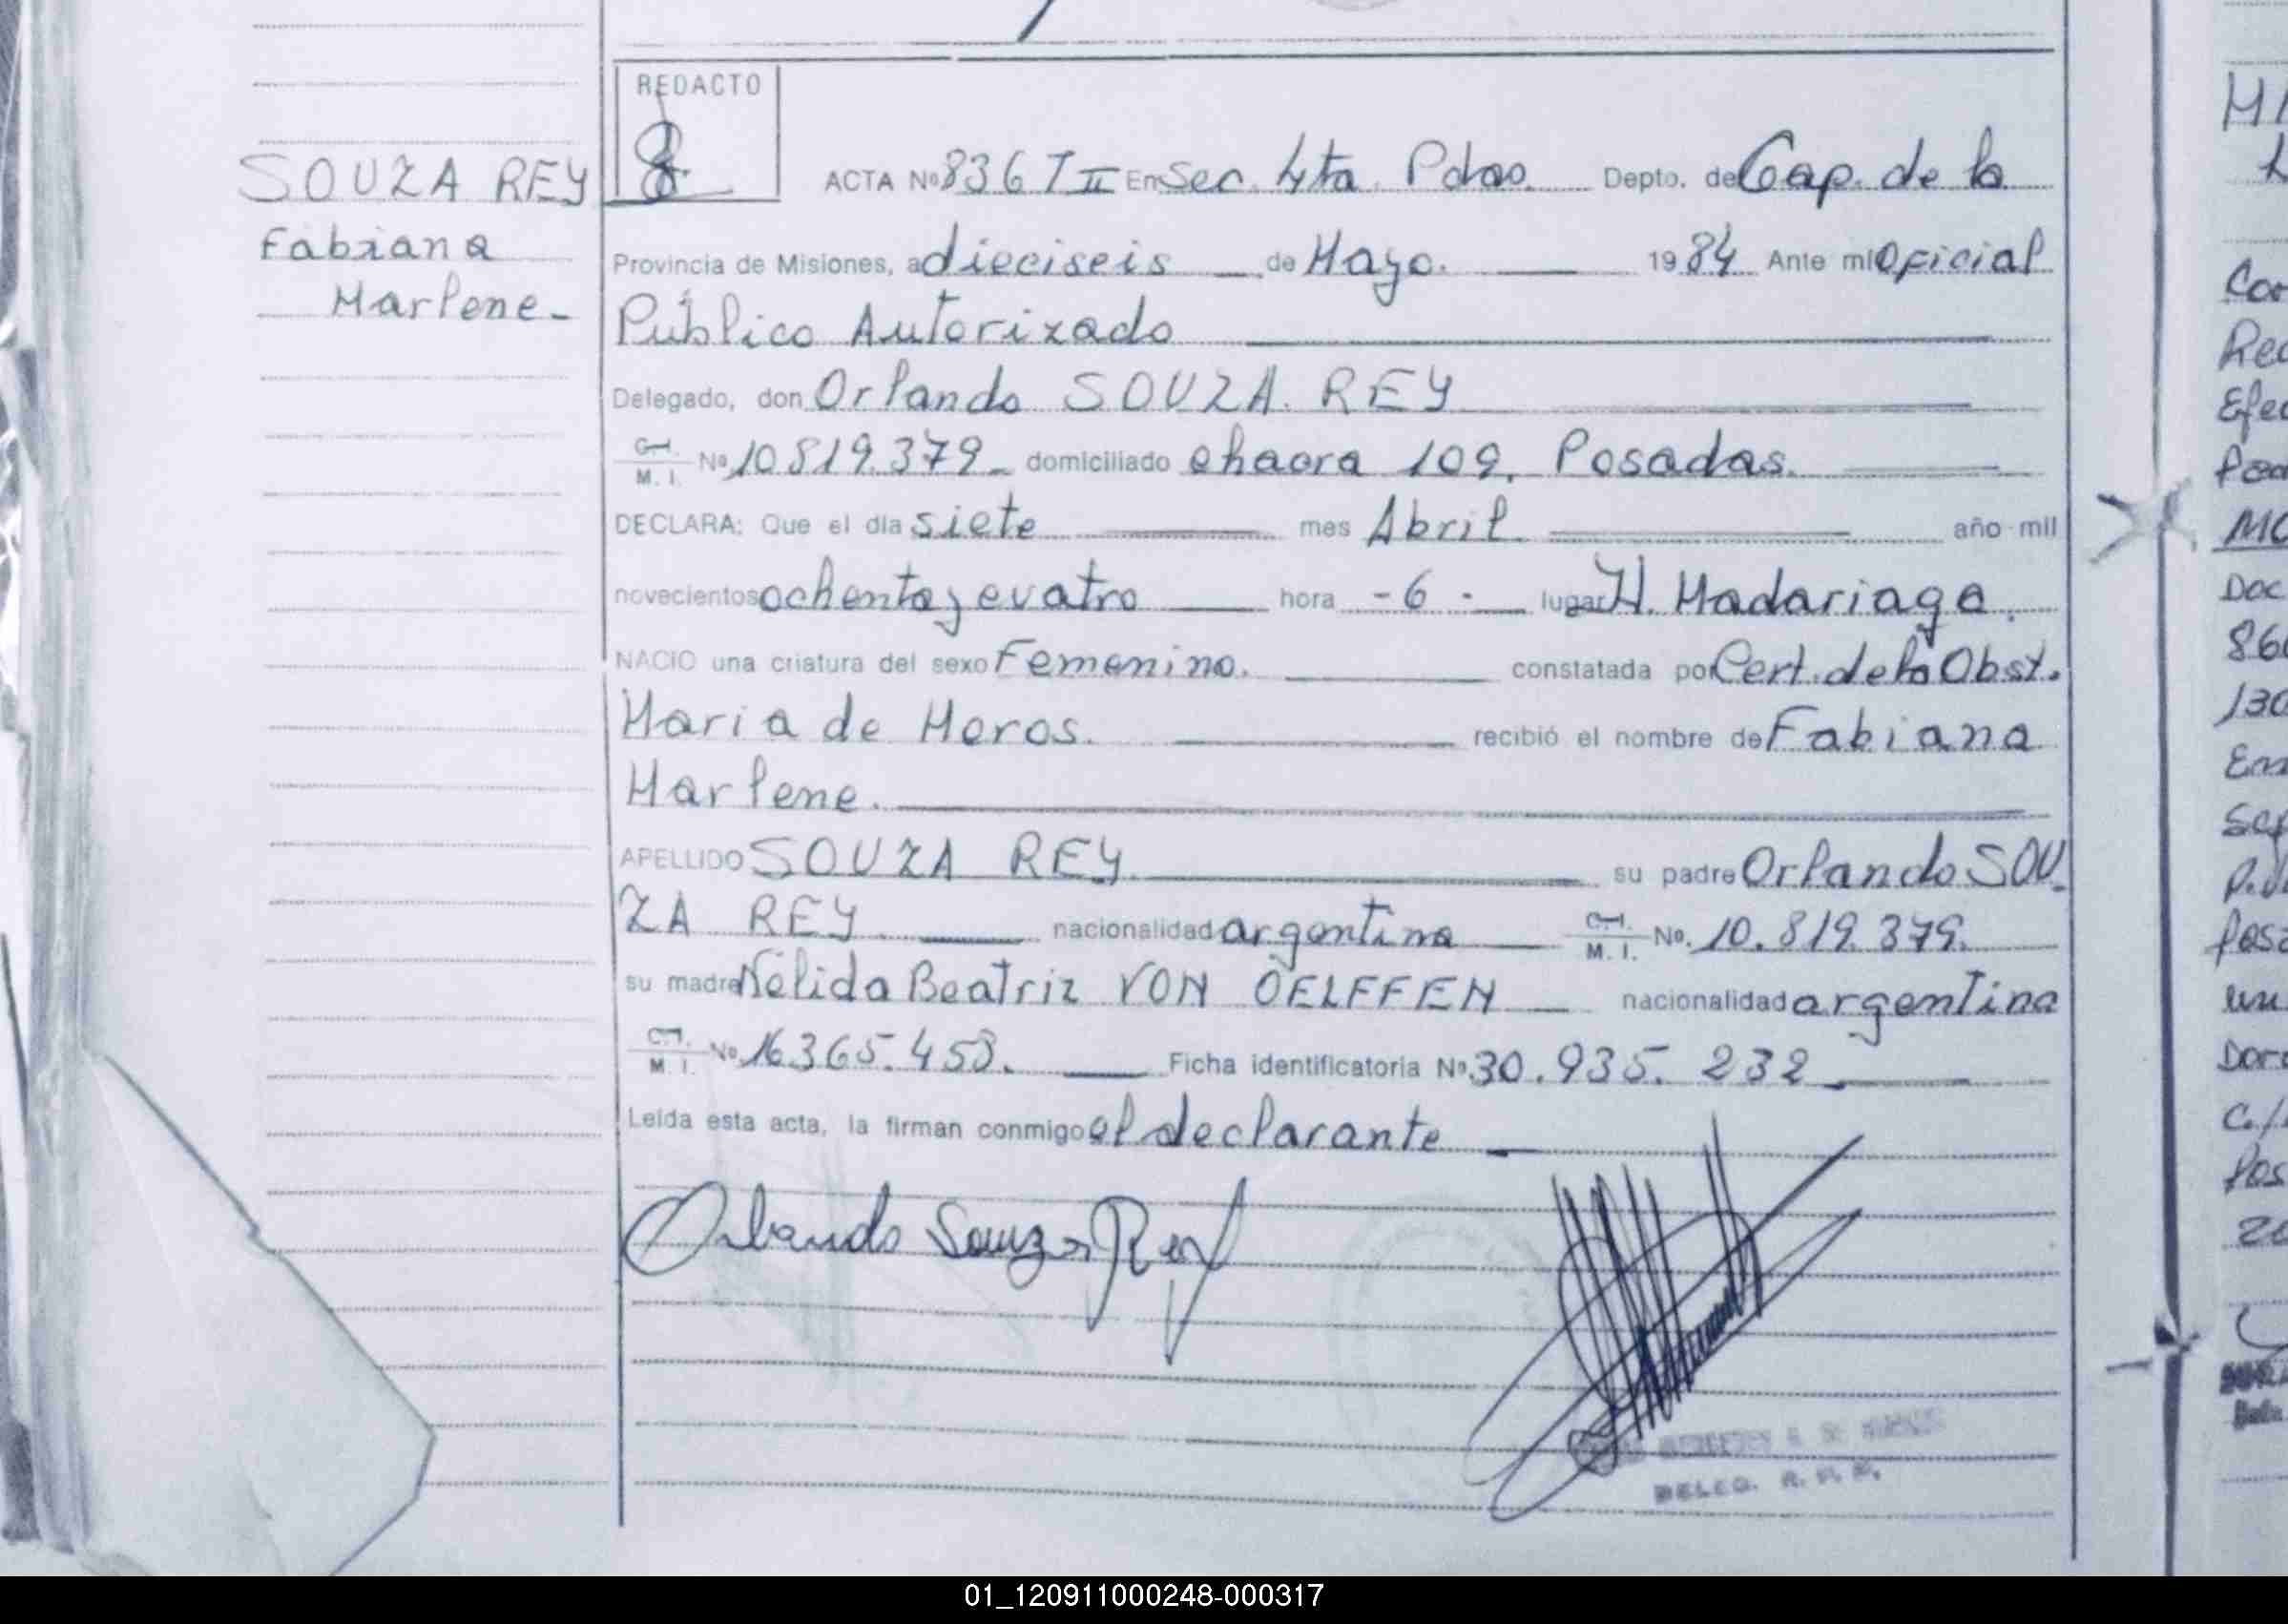 REDACTO
SOUZA REY
Fabiana
Marlene-
ACTA Nº 836 T II En Sec. 4ta. Pdas. Depto. de Cap. de la
Provincia de Misiones, a dieciseis de Mayo. 1984 Ante mi Oficial
Público Autorizado
Delegado, don Orlando SOUZA REY
C.I.
M. I. Nº 10.819.379_ domiciliado chacra 109. Posadas.
DECLARA: Que el día siete mes Abril. año mil
novecientos ochenta y cuatro hora -6- lugar H. Madariaga.
NACIO una criatura del sexo Femenino. constatada por Cert. de la Obst.
Maria de Meros. recibió el nombre de Fabiana
Marlene.
APELLIDO SOUZA REY. su padre Orlando SOU
ZA REY nacionalidad argentina C.I.
M. I. Nº. 10.819.379.
su madre Nélida Beatriz VON OELFFEN nacionalidad argentina
C.I.
M. I. Nº 16.365.453. Ficha identificatoria Nº 30.935.232
Leída esta acta, la firman conmigo el declarante
Orlando Souza Rey
DELEG. R. P. P.
MC
Doc
Pos
01_120911000248-000317